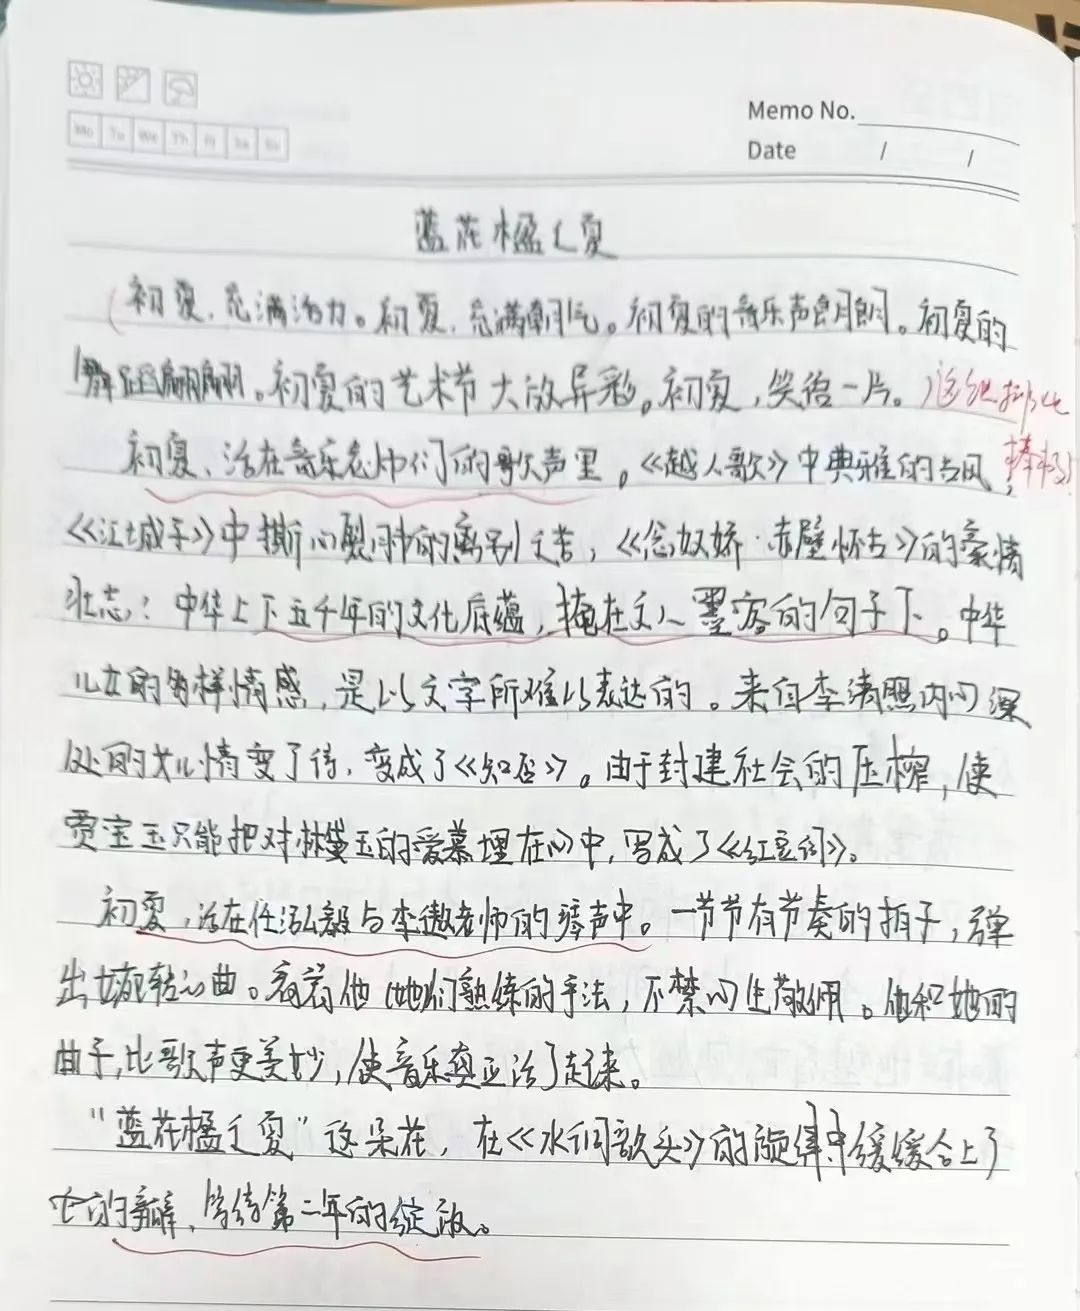 Mo Tu We Th Fr Sa Su
Memo No.
Date / /
蓝花楹之夏
初夏,充满活力。初夏,充满朝气。初夏的音乐声朗朗。初夏的
舞蹈翩翩。初夏的艺术节大放异彩。初夏,笑语一片。
这组排比
棒极了
初夏,活在音乐老师们的歌声里。《越人歌》中典雅的古风,
《江城子》中撕心裂肺的离别之苦,《念奴娇·赤壁怀古》的豪情
壮志;中华上下五千年的文化底蕴,掩在文人墨客的句子下。中华
儿女的多样情感,是以文字所难以表达的。来自李清照内心深
处的女儿情变了待,变成了《知否》。由于封建社会的压榨,使
贾宝玉只能把对林黛玉的爱慕埋在心中,写成了《红豆词》。
初夏,活在任泓毅与李璈老师的琴声中。一节节有节奏的拍子,弹
出婉转心曲。看着他(她)们熟练的手法,不禁心生敬佩。他和她的
曲子,比歌声更美妙,使音乐真正活了起来。
“蓝花楹之夏”这朵花,在《水调歌头》的旋律中缓缓合上了
它的瓣,等待第二年的绽放。